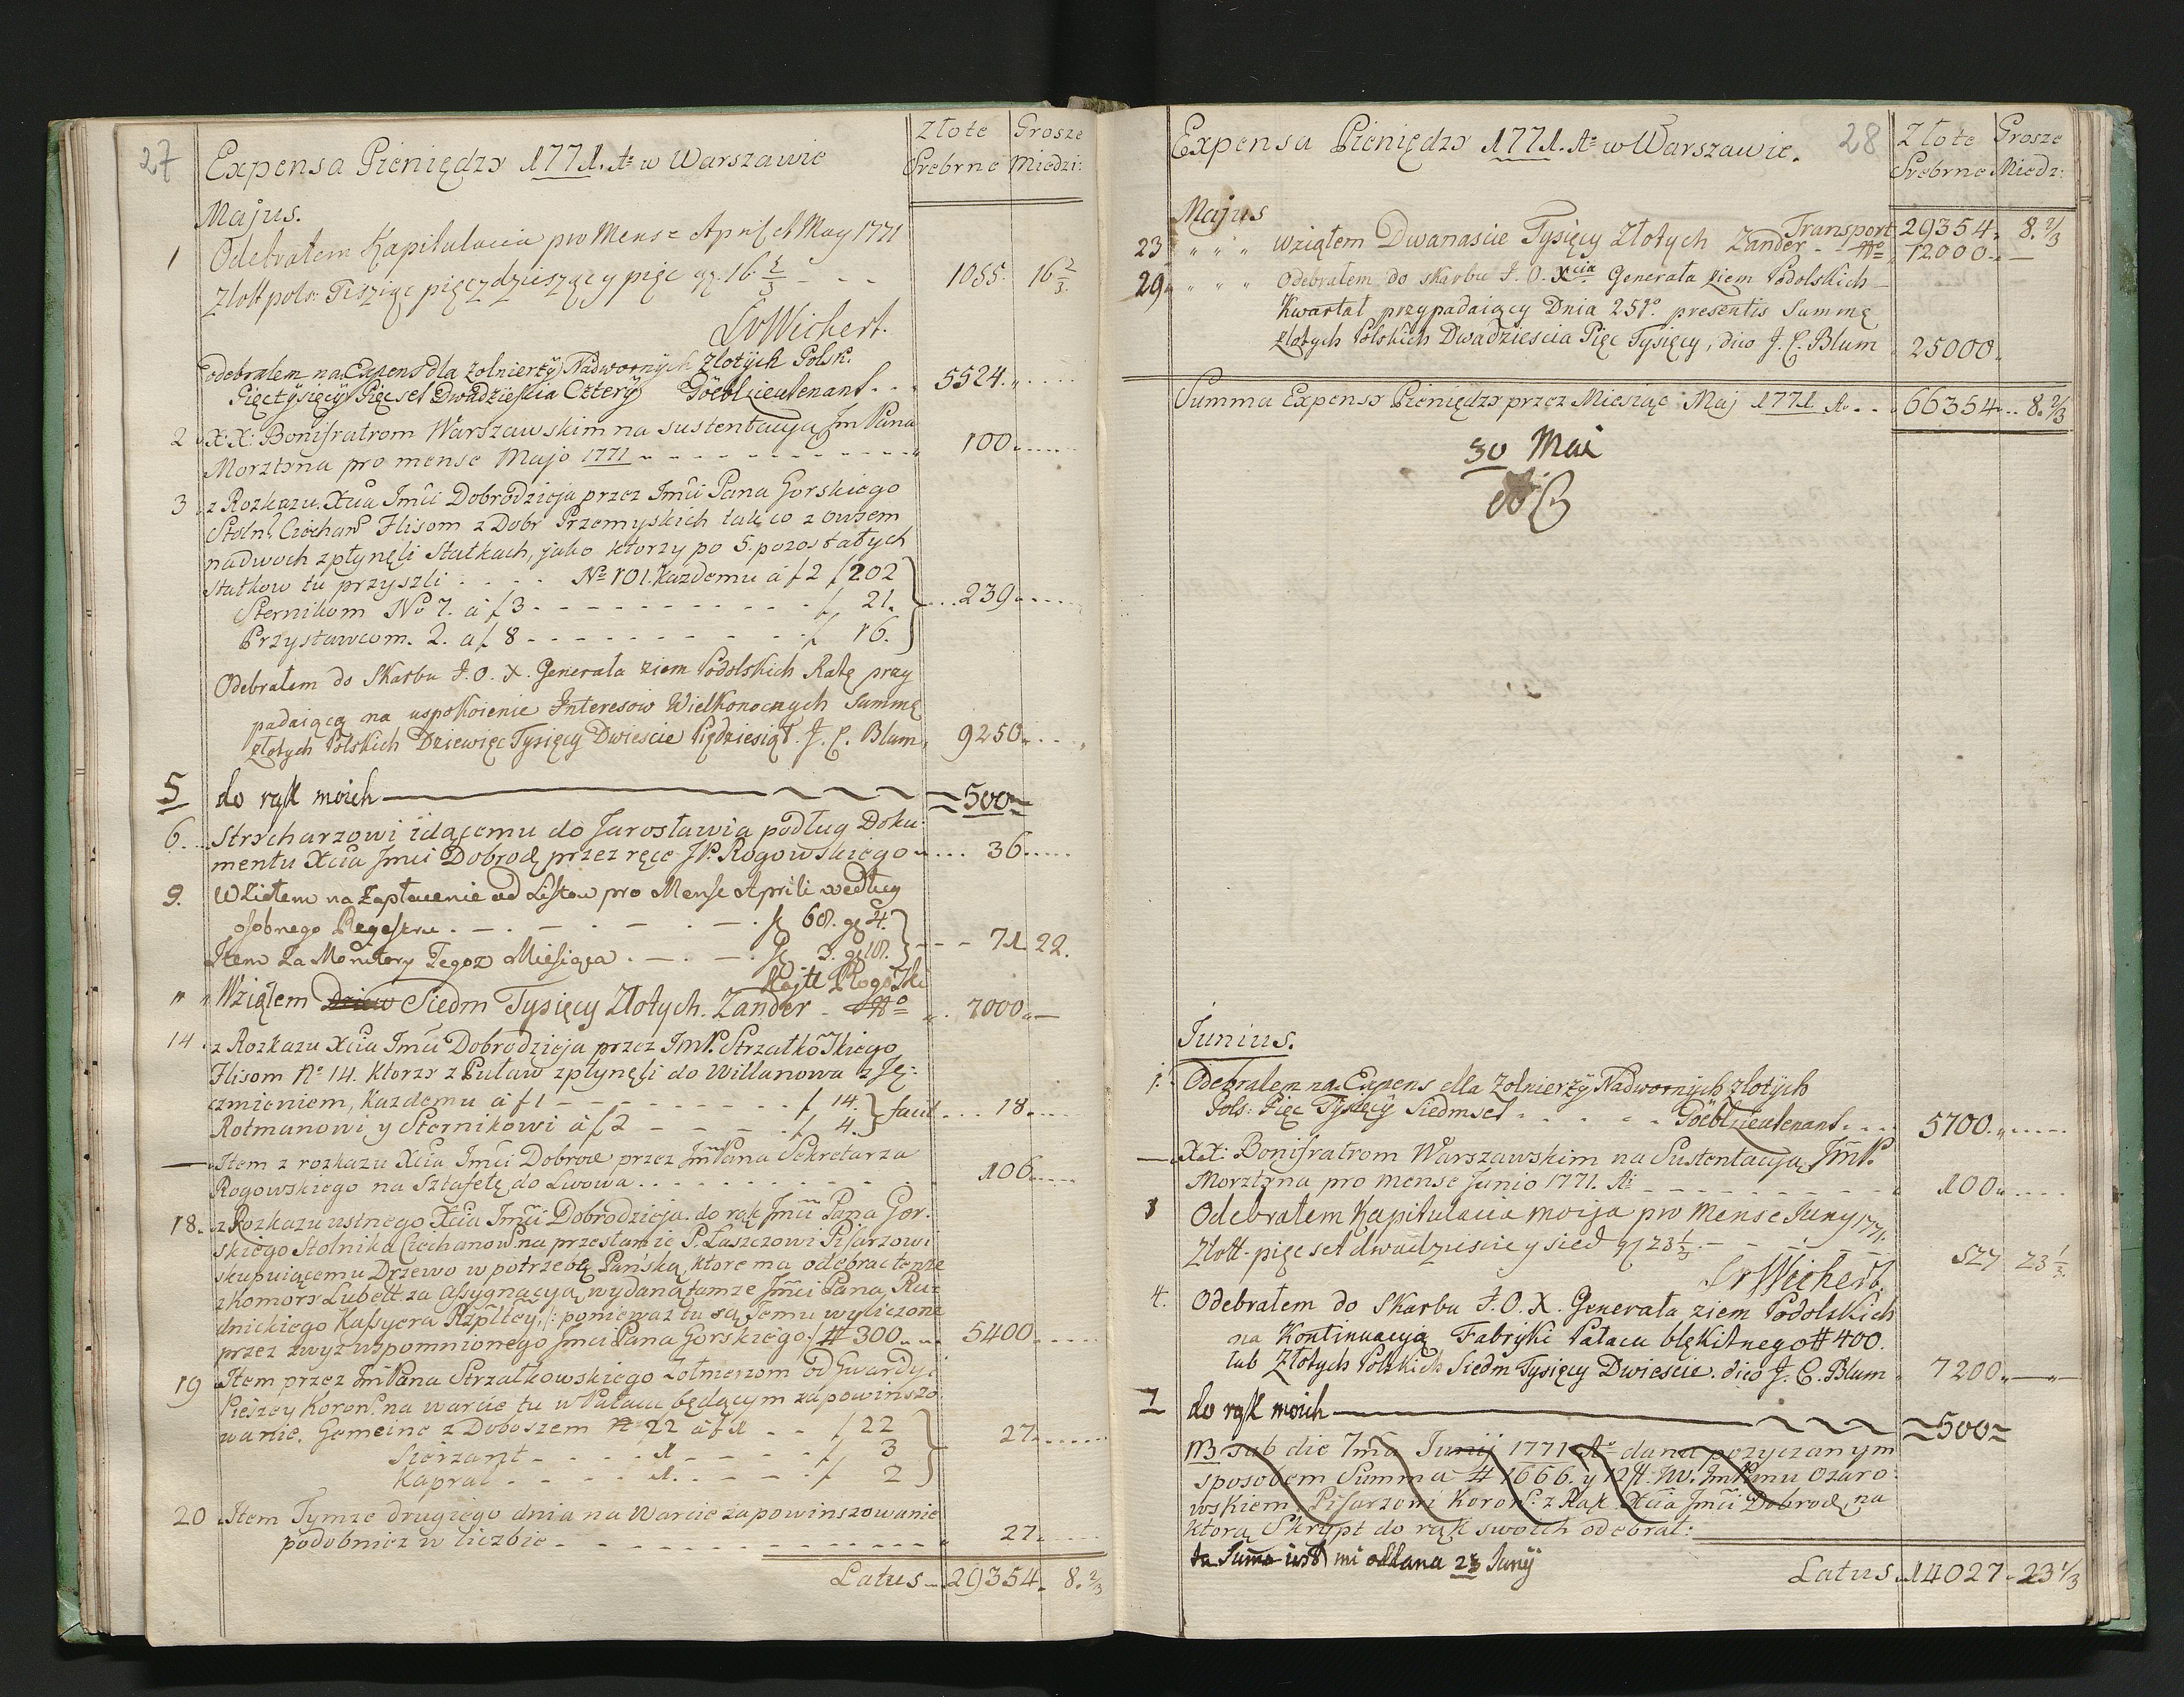 27
Expensa Pieniędzy 1771. Aº w Warszawie
Złote Grosze
Srebrne Miedzi:
Majus.
1 Odebrałem Kapitulacia pro Mense April et May 1771
Zlott pols: Tisziąc pięczdzieszący pięc gr. 16 2/3 - - 1055. 16 2/3
LvWichert.
odebralem na Expens dla żolnierzÿ Nadwornÿch Zlotÿch Polsk:
Pięc tÿsięcÿ Pięc set Dwadzieścia Czterÿ Göebl Lieutenant. . . 5524. " . . . .
2 X: X: Bonifratrom Warszawskim na sustentacyą Jm Pana
Morztyna pro mense Majo 1771 - - - - - - - - - - - 100. . . . .
3 z Rozkazu Xcia Jmci Dobrodzieja przez Jmci Pana Gorskiego
Stoln: Ciechan: Flisom z Dobr Przemyskich tak co z owsem
na dwoch zpłynęli Statkach, jako ktorzy po 5. pozostałych
statkow tu przyszli . . . . Nº 101. Każdemu a f 2 f 202
Sternikom Nº 7. a f 3 - - - - - - - - - - f, 21. } . . . 239. . . . .
Przystawcom. 2. a f 8 - - - - - - - - - - f 16.
Odebrałem do Skarbu J. O. X. Generała ziem Podolskich Ratę przy
padaiącą na uspokoienie Interesow Wielkonocnych Summę
złotych Polskich Dziewięc Tysięcy Dwieście Piędziesiąt. J. C. Blum. 9250. . . . "
5 do rąk moich 500
6. . . Strycharzowi idącemu do Jarosławia podług Doku-
mentu Xcia Jmci Dobrodz przez ręce JP. Rogowskiego . . . . 36. . . . .
9. Wziełem na Zapłacenie od Listow pro Mense Aprili według
osobnego Regestru. - . - . - . - . f 68. gr 4.
Item Za Monitory Tegoz Miesiąca . - . - . f 3. gr 18. } - - - 71. 22.
Kajt Rogowski
" " Wziąłem Dziew Siedm Tysięcy Złotych. Zander - " . 7000. " —
14. z Rozkazu Xcia Jmci Dobrodzieja przez JmP. Strzałkowskiego
Flisom Nº 14. ktorzy z Puław zpłynęli do Willanowa z Ję-
czmieniem, Kazdemu a f 1 - - - - - - - f 14.
Rotmanowi y Sternikowi a f 2 - - - - f, 4. } facit . . . 18. . . .
— Item z rozkazu Xcia Jmci Dobrodz przez Jm Pana Sekretarza
Rogowskiego na Sztafetę do Lwowa . . . . . . . . . . . 106. . . . .
18. z Rozkazu ustnego Xcia Jmci Dobrodzieja. do rąk Jmci Pana Gor-
skiego Stolnika Ciechanow: na przesłanie P. Łaszczowi Pisarzowi
skupuiącemu Drzewo w potrzebę Pańską, ktore ma odebrac tenze
z komory Lubelt: za assygnacyą wydaną tamze Jmci Pana Ru-
dnickiego Kassyera Rzpltey /: poniewaz tu są Jemu wyliczone
przez zwyz wspomnionego Jmci Pana Gorskiego :/ # 300. . . . 5400. . . . .
19 Item przez Jm Pana Strzałkowskiego żołnierzom od Gwardyi
Pieszey Koron: na warcie tu w Pałacu będącym za powinszo-
wanie. Gemeine z Doboszem Nº 22 a f 1 . . f 22
Sierżant - . - . - . 1. - - - - f 3 } 27. . . . .
Kapral - . - . - . 1. - - - . f 2
20 Item Tymze drugiego dnia na Warcie za powinszowanie
podobniez w liczbie - - - - - - - - - - - - - - - - - - - 27. . . .
Latus 29354. 8. 2/3
28
Expensa Pieniędzy 1771. Aº w Warszawie.
Złote Grosze
Srebrne Miedz:
Majus
Transport 29354. 8. 2/3
23 " " " Wziąłem Dwanascie Tysięcy Złotych Zander - 12000. . —
29. " " " Odebrałem do skarbu J. O. Xcia Generała ziem Podolskich
Kwartał przypadaiący Dnia 25go. presentis Summę
złotych Polskich Dwadziescia Pięc Tysięcy, dico J. C. Blum 25000.
Summa Expensy Pieniędzy przez Miesiąc Maj 1771 A. . . 66354. . . 8. 2/3
30 Mai
Junius.
1. Odebralem na Expens dla żolnierzÿ Nadwornÿch złotÿch
Pols: Pięc Tÿsięcÿ Siedmset . . . . Göebl Lieutenant. . . . 5700. " . . . .
— XX: Bonifratrom Warszawskim na Sustentacyą JmP.
Morztyna pro mense Junio 1771. Aº - - - - - - - - 100. . . . .
3 Odebrałem Kapitulacia moija pro Mense Juny 1771.
Złott. pięc set dwadziscie y sied gr 23 1/3. - - - - - 527 23 1/3
LvWichert.
4. Odebrałem do Skarbu J. O. X. Generała ziem Podolskich
na Kontinuacyą Fabryki Pałacu błękitnego # 400.
lub Złotych Polskich Siedm Tysięcy Dwieście. dico J. C. Blum 7200. —
7 do rąk moich 500
NB sub die 7ma Junij 1771 Aº dana pozyczanym
sposobem Summa # 1666. y 12 f. JmPanu Ozaro-
wskiem: Pisarzowi Koron: z Rąk Xcia Jmci Dobrodz, na
ktorą Skrypt do rąk swoich odebrał:
ta Suma iest mi oddana 23 Junÿ
Latus 14027 . 23 1/3